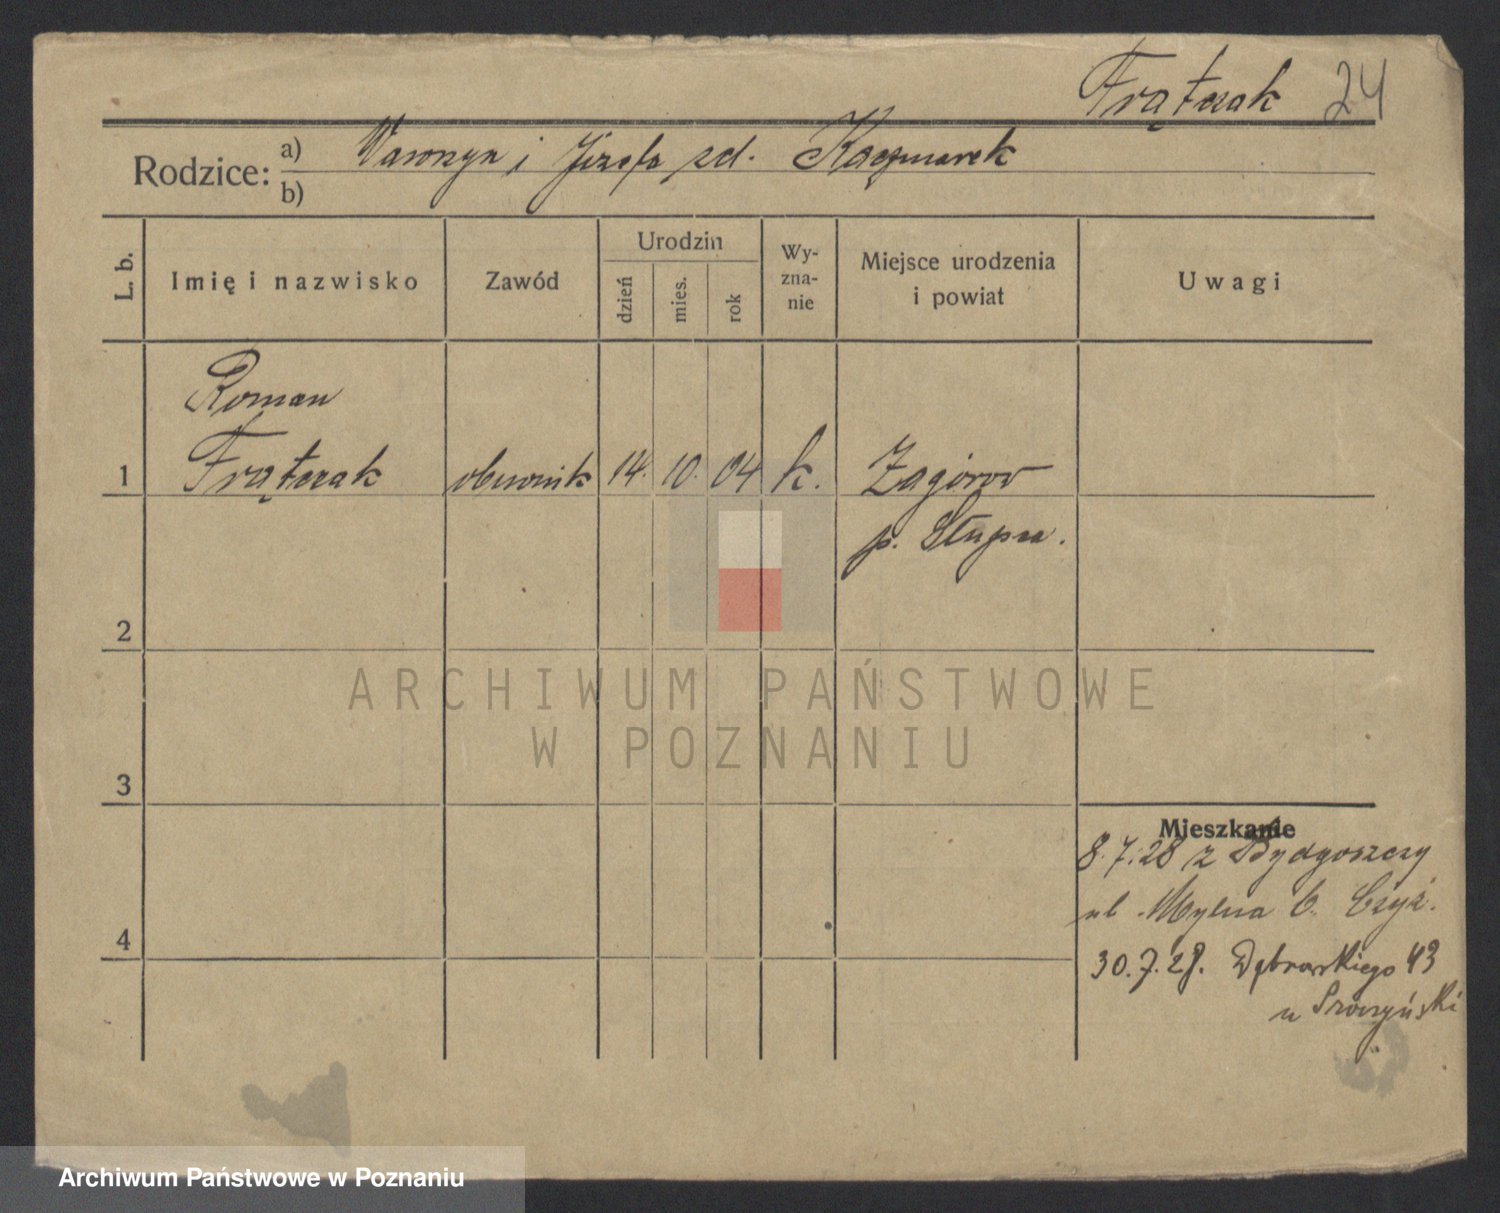 Frątczak 24
Rodzice: a) Wawrzyn i Józefa zd. Kaczmarek
b)
L. b. Imię i nazwisko Zawód Urodzin dzień mies. rok Wy-zna-nie Miejsce urodzenia i powiat Uwagi
Roman
1 Frątczak obuwnik 14. 10. 04 k. Zagórow
p. Słupca.
2
ARCHIWUM PAŃSTWOWE
W POZNANIU
3
Mieszkanie
8.7.28 z Bydgoszczy
ul. Mylna 6. Czyż.
4
30.7.28. Dąbrowskiego 43
u
Archiwum Państwowe w Poznaniu